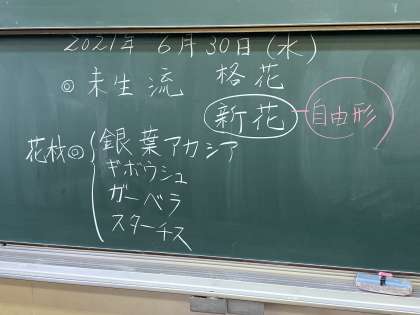 2021年 6月30日(水)
◎未生流 格花
新花 自由形
花材◎ 銀葉アカシア
ギボウシュ
ガーベラ
スターチス